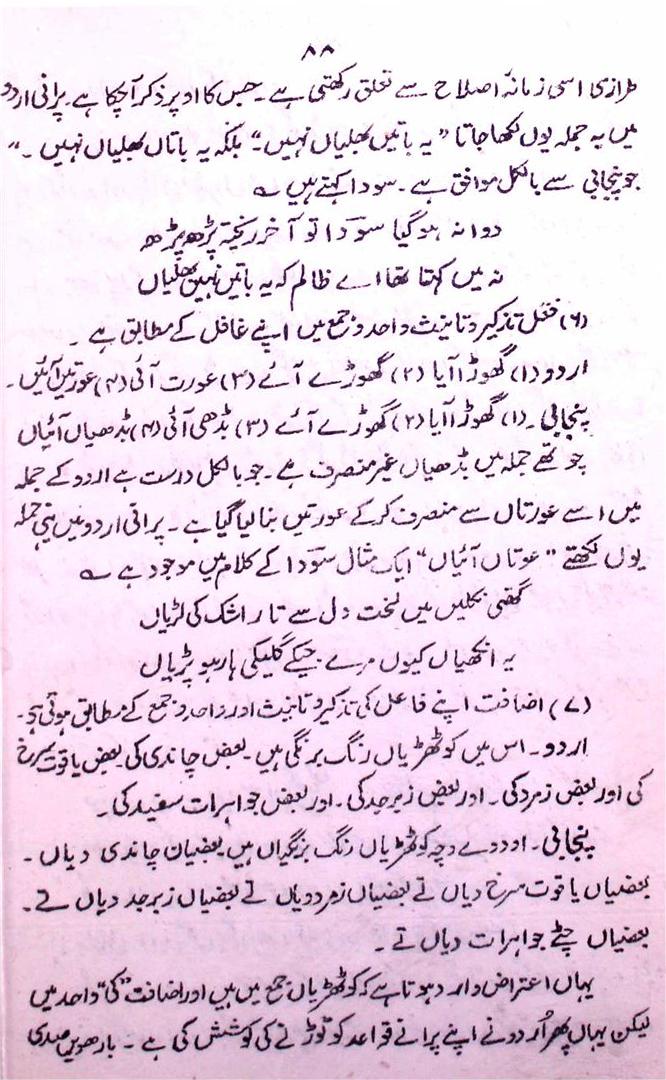 ۸۸
طرازی اسی زمانۂ اصلاح سے تعلق رکھتی ہے۔ جس کا اوپر ذکر آچکا ہے۔ پرانی اردو
میں یہ جملہ یوں لکھا جاتا "یہ باتیں بھلیاں نہیں" بلکہ یہ باتاں بھلیاں نہیں۔"
جو پنجابی سے بالکل موافق ہے۔ سودا کہتے ہیں ؎
دوانہ ہوگیا سوداؔ تو آخر ریختہ پڑھ پڑھ
نہ میں کہتا تھا اے ظالم کہ یہ باتیں نہیں بھلیاں
(۶) فعل تذکیر و تانیث واحد و جمع میں اپنے فاعل کے مطابق ہے۔
اردو (۱) گھوڑا آیا (۲) گھوڑے آئے (۳) عورت آئی (۴) عورتیں آئیں۔
پنجابی۔ (۱) گھوڑا آیا (۲) گھوڑے آئے (۳) بڈھی آئی (۴) بڈھیاں آئیاں
چوتھے جملہ میں بڈھیاں غیر منصرف ہے۔ جو بالکل درست ہے اردو کے جملہ
میں اسے عورتاں سے منصرف کرکے عورتیں بنا لیا گیا ہے۔ پرانی اردو میں یہی جملہ
یوں لکھتے "عوتاں آئیاں" ایک مثال سوداؔ کے کلام میں موجود ہے ؎
نکلیں میں لخت دل سے تار اشک کی لڑیاں
یہ انکھیاں کیوں مرے جیکے گلیکی ہار ہو پڑیاں
(۷) اضافت اپنے فاعل کی تذکیر و تانیث اور واحد و جمع کے مطابق ہوتی ہے۔
اردو۔ اس میں کوٹھڑیاں رنگ برنگی ہیں۔ بعض چاندی کی بعض یاقوت سرخ
کی اور بعض زمرد کی۔ اور بعض زبرجد کی۔ اور بعض جواہرات سفید کی۔
پنجابی۔ اوددے وچہ کوٹھڑیاں رنگ برنگیاں ہیں بعضیان چاندی دیاں۔
بعضیاں یاقوت سرخ دیاں تے بعضیاں زمرد دیاں تے بعضیاں زبرجد دیاں تے۔
بعضیاں چٹے جواہرات دیاں تے۔
یہاں اعتراض وارد ہوتا ہے کہ کوٹھڑیاں جمع میں ہیں اور اضافت "کی" واحد میں
لیکن یہاں پھر اُردو نے اپنے پرانے قواعد کو توڑنے کی کوشش کی ہے۔ بارھویں صدی